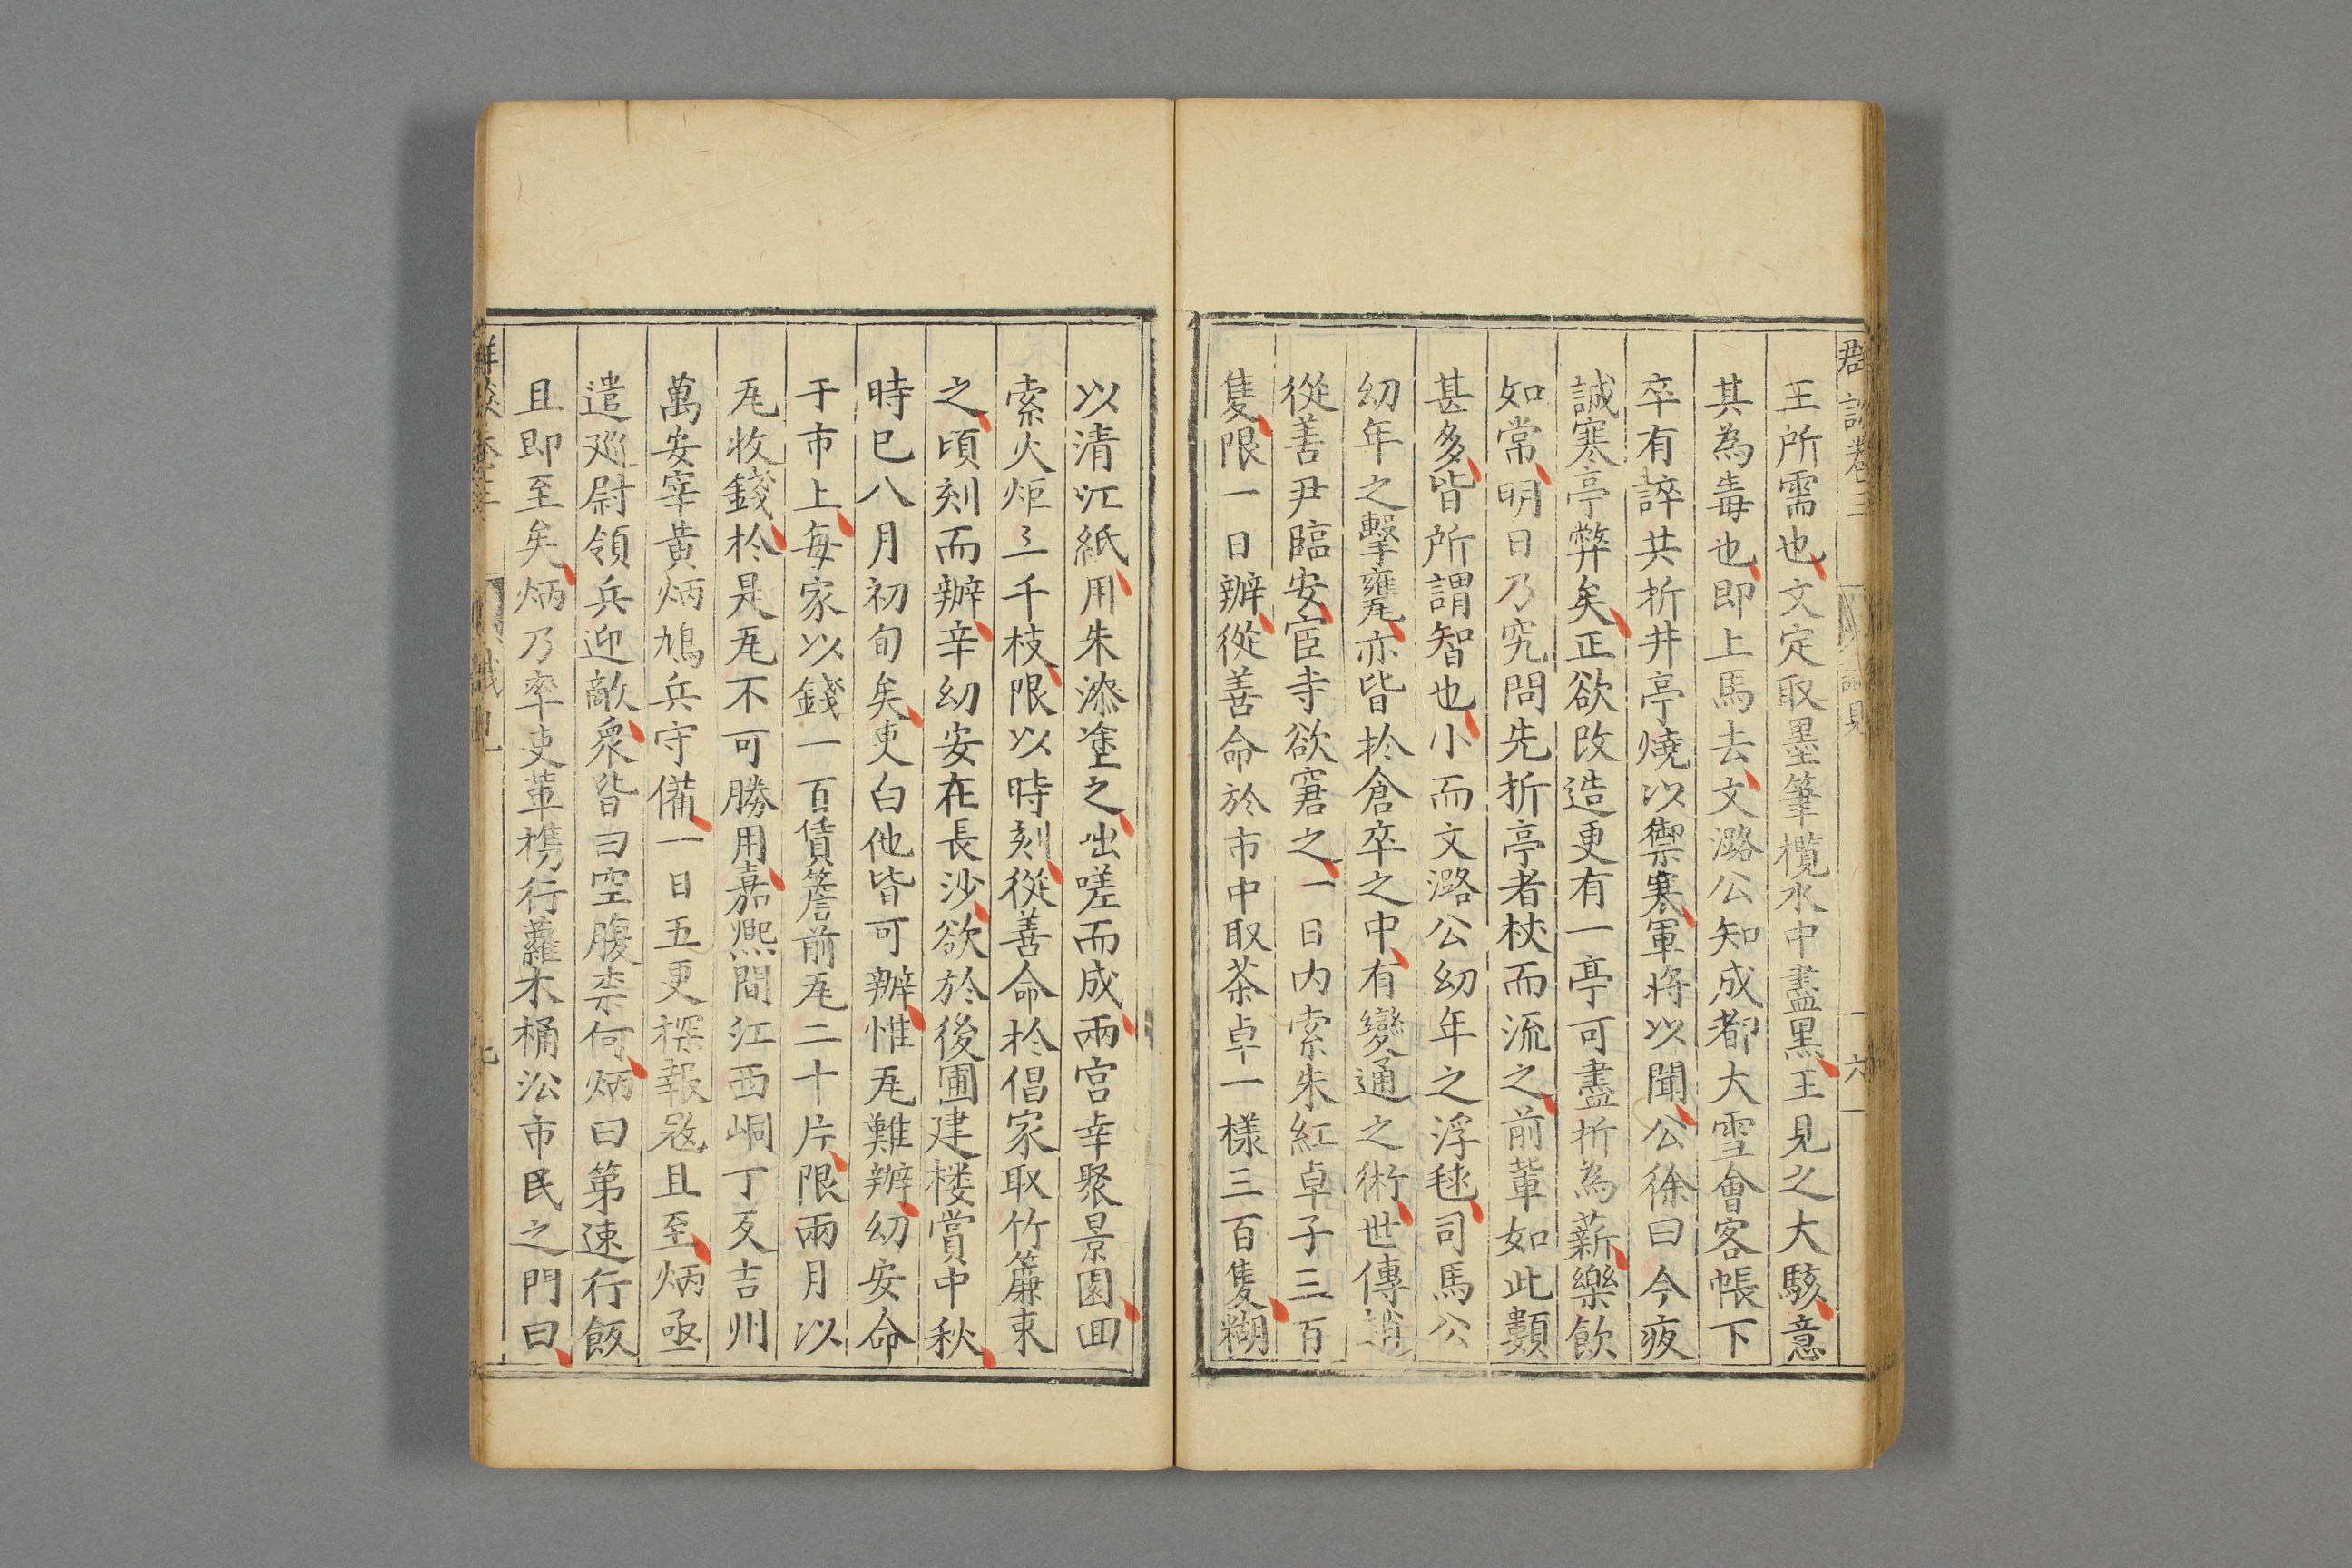 群談卷三
六
王所需也文定取墨筆攬水中盡黑王見之大駭意
其為毒也即上馬去文潞公知成都大雪會客帳下
卒有誶共折井亭燒以禦寒軍將以聞公徐曰今夜
誠寒亭弊矣正欲改造更有一亭可盡折為薪樂飲
如常明日乃究問先折亭者杖而流之前輩如此類
甚多皆所謂智也小而文潞公幼年之浮毬司馬公
幼年之擊甕亦皆於倉卒之中有變通之術世傳趙
從善尹臨安宦寺欲窘之一日内索朱紅卓子三百
隻限一日辦從善命於市中取茶卓一樣三百隻糊
以清江紙用朱漆塗之咄嗟而成兩宮幸聚景園囬
索火炬三千枝限以時刻從善命扵倡家取竹簾束
之頃刻而辦辛幼安在長沙欲於後圃建楼賞中秋
時已八月初旬矣吏白他皆可辦惟瓦難辦幼安命
于市上每家以錢一百賃簷前瓦二十片限兩月以
瓦收錢扵是瓦不可勝用嘉熈間江西峒丁反吉州
萬安宰黄炳鳩兵守備一日五更探報寇且至炳亟
遣廵尉領兵迎敵衆皆曰空腹柰何炳曰第速行飯
且即至矣炳乃率吏軰携行蘿木桶沿市民之門曰